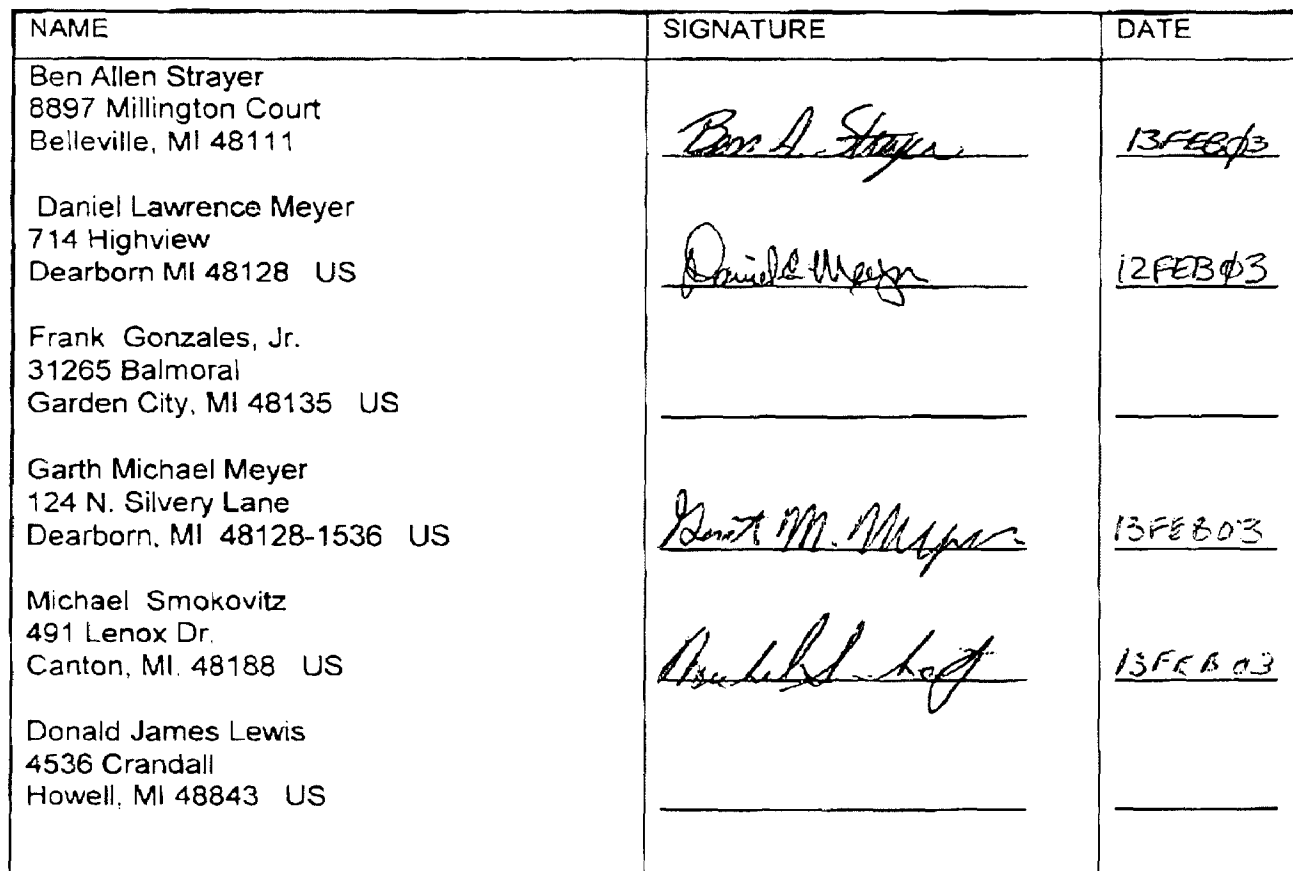 NAME SIGNATURE DATE
Ben Allen Strayer
8897 Millington Court
Belleville, MI 48111 Ben A. Strayer 13FEB03
Daniel Lawrence Meyer
714 Highview
Dearborn MI 48128 US Daniel L Meyer 12FEB03
Frank Gonzales, Jr.
31265 Balmoral
Garden City, MI 48135 US
Garth Michael Meyer
124 N. Silvery Lane
Dearborn, MI 48128-1536 US Garth M. Meyer 13FEB03
Michael Smokovitz
491 Lenox Dr.
Canton, MI. 48188 US 13FEB03
Donald James Lewis
4536 Crandall
Howell, MI 48843 US